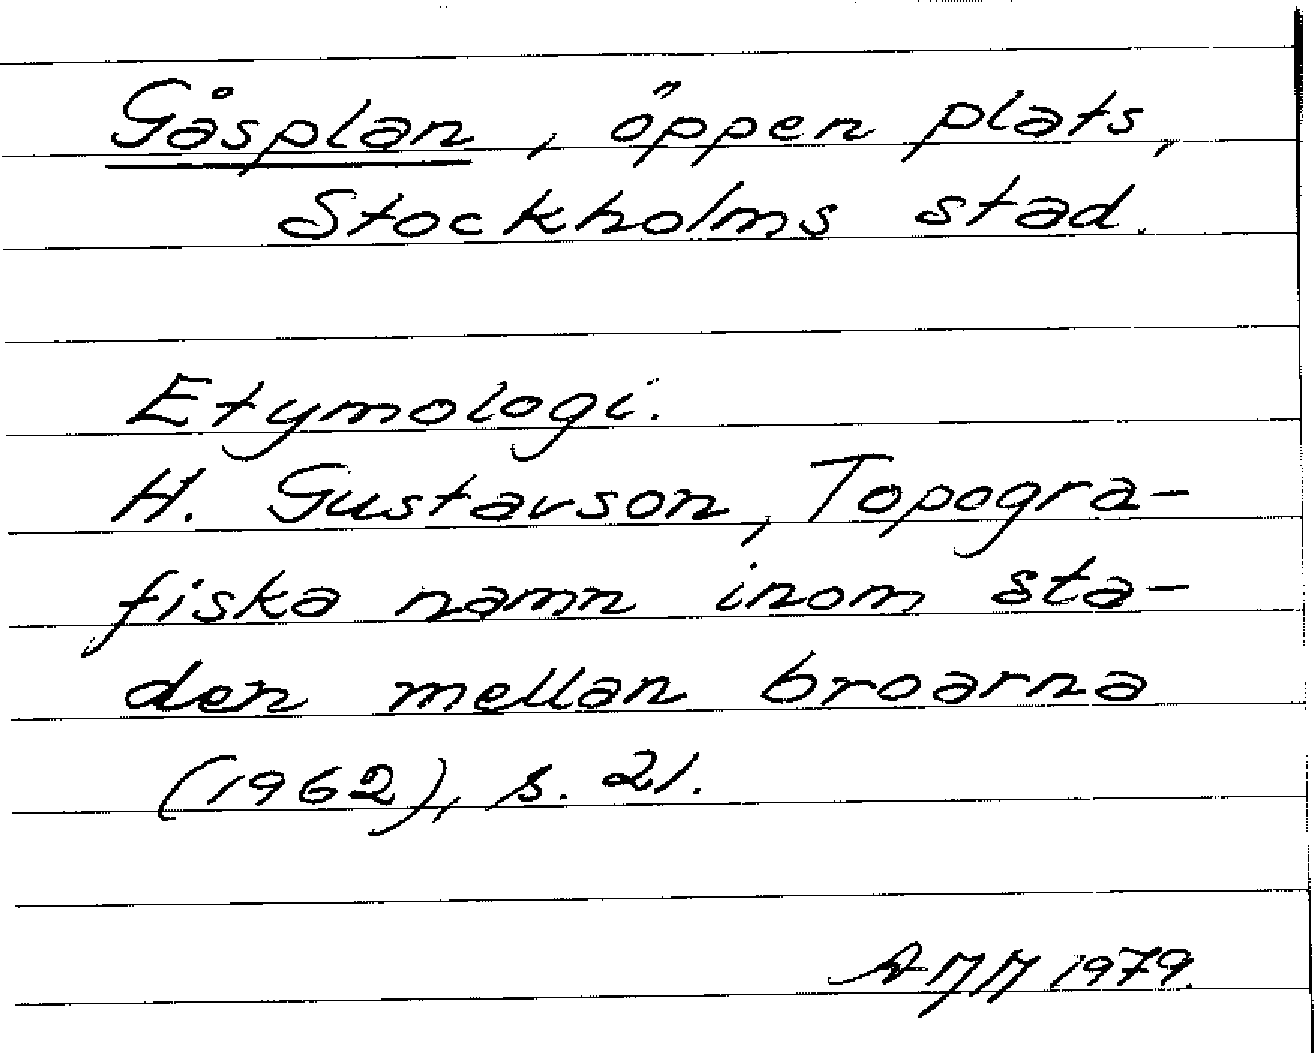 Gåsplan, öppen plats,
Stockholms stad.
Etymologi.
H. Gustavson, Topogra-
fiska namn inom sta-
den mellan broarna
(1962), s. 21.
1979.